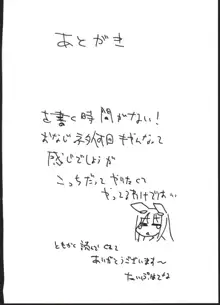 あとがき
を書く時間がない!
おなじネタ何回もやんなって
感じでしょうが
こっちだって やりたくて
やってるわけでは い
ともかく 読んでくれて
ありがとうございます〜